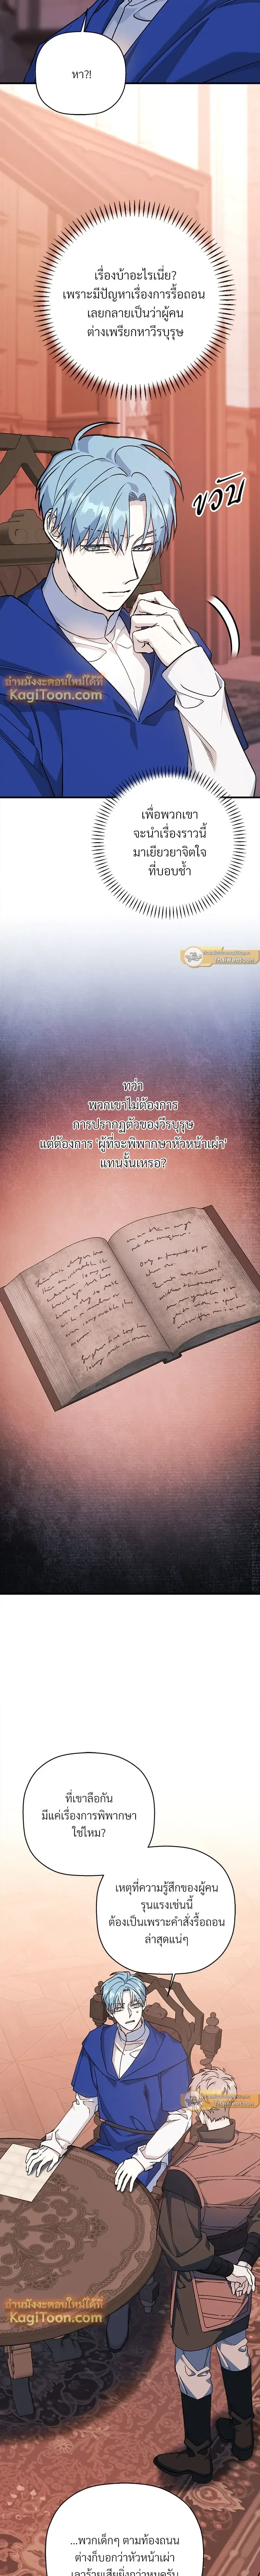 หา?!
เรื่องบ้าอะไรเนี่ย?
เพราะมีปัญหาเรื่องการรื้อถอน
เลยกลายเป็นว่าผู้คน
ต่างเพรียกหาวีรบุรุษ
ขวับ
อ่านมังงะตอนใหม่ได้ที่
KagiToon.com
เพื่อพวกเขา
จะนำเรื่องราวนี้
มาเยียวยาจิตใจ
ที่บอบช้ำ
ทว่า
พวกเขาไม่ต้องการ
การปรากฏตัวของวีรบุรุษ
แต่ต้องการ 'ผู้ที่จะพิพากษาหัวหน้าเผ่า'
แทนงั้นเหรอ?
ที่เขาลือกัน
มีแค่เรื่องการพิพากษา
ใช่ไหม?
เหตุที่ความรู้สึกของผู้คน
รุนแรงเช่นนี้
ต้องเป็นเพราะคำสั่งรื้อถอน
ล่าสุดแน่ๆ
อ่านมังงะตอนใหม่ได้ที่
KagiToon.com
...พวกเด็กๆ ตามท้องถนน
ต่างก็บอกว่าหัวหน้าเผ่า
เลวร้ายเสียยิ่งกว่าหมูครับ